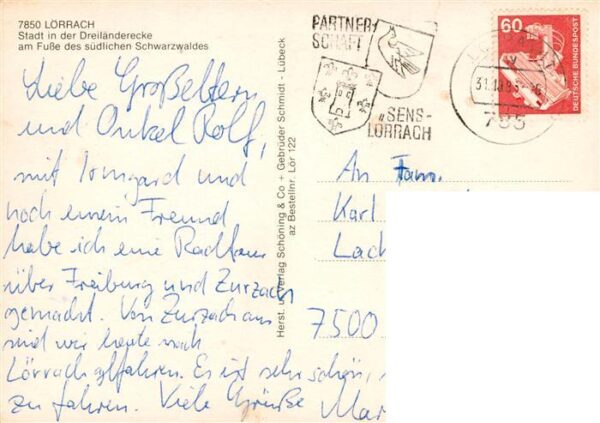 7850 LÖRRACH
Stadt in der Dreiländerecke
am Fuße des südlichen Schwarzwaldes
Liebe Großeltern
und Onkel Rolf,
mit Irmgard und
noch einem Freund
habe ich eine Radtour
über Freiburg und Zurzach
gemacht. Von Zurzach aus
sind wir heute nach
Lörrach gefahren. Es ist sehr schön,
zu fahren. Viele Grüße
Herst. u. Verlag Schöning & Co + Gebrüder Schmidt - Lübeck
az Bestellnr. Lör 122
PARTNER-
SCHAFT
SENS-
LÖRRACH
60
DEUTSCHE BUNDESPOST
785
An Fam.
Karl
Lach
7500